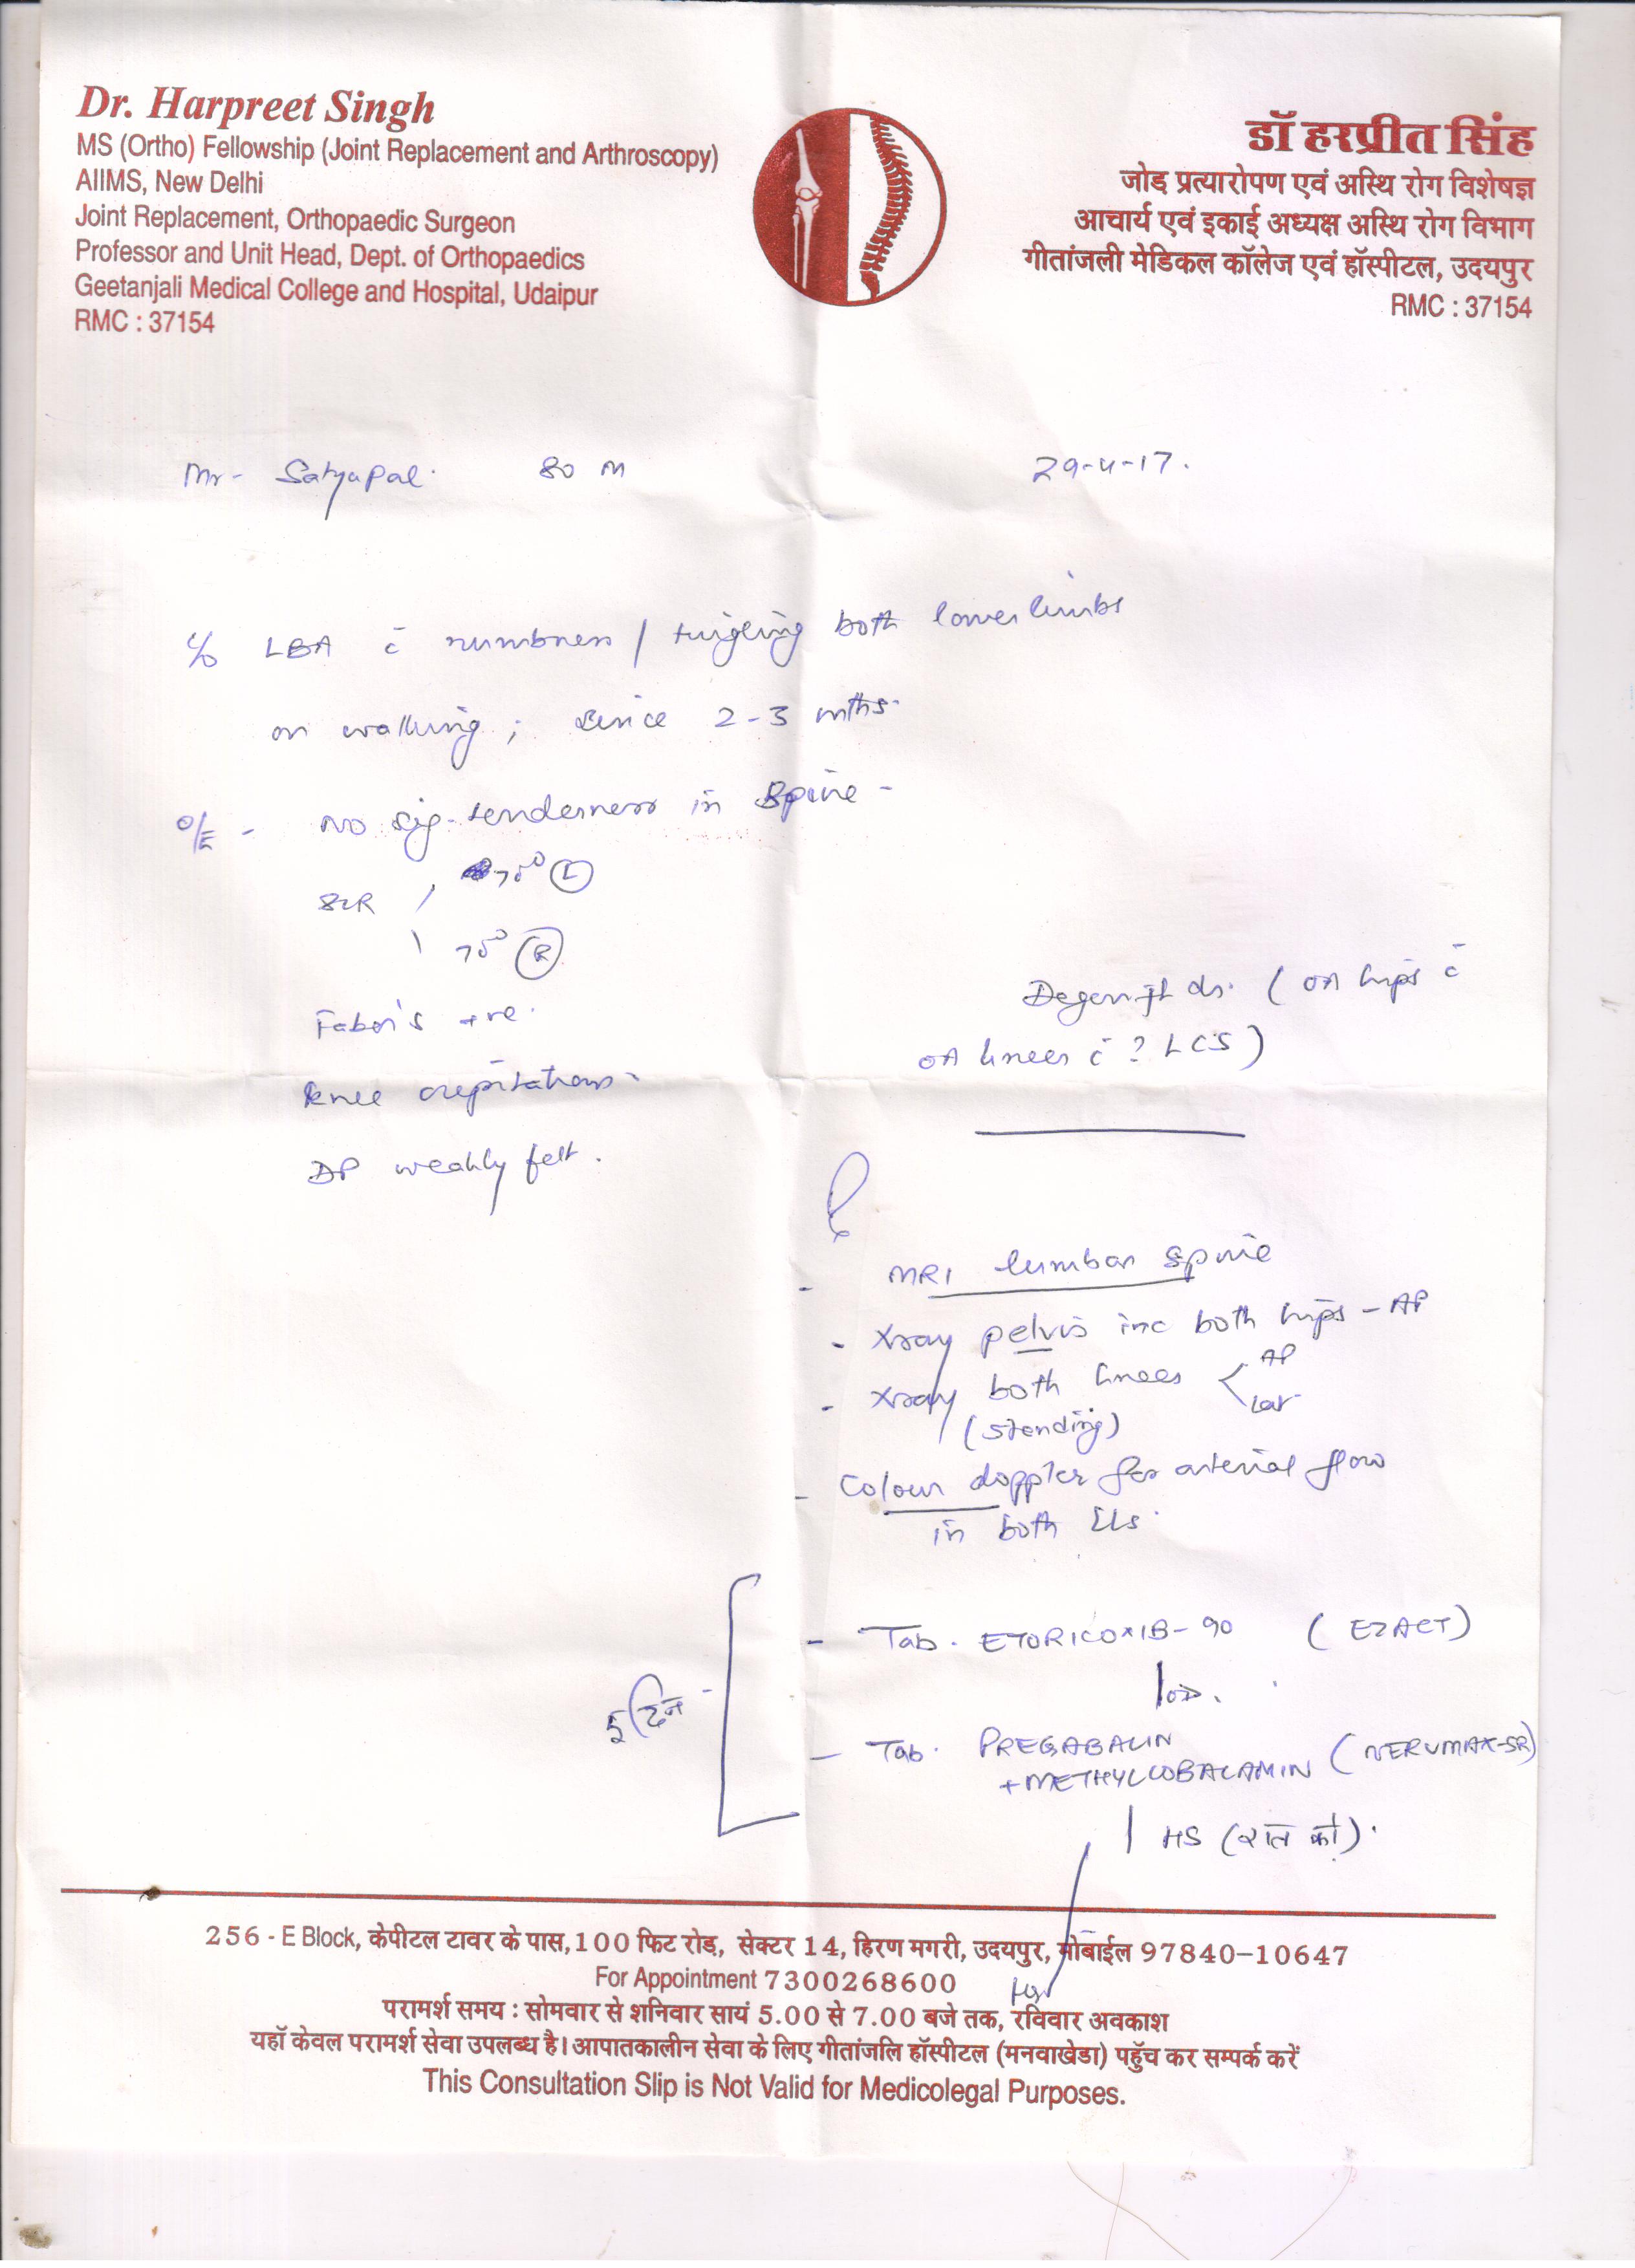 Dr. Harpreet Singh
MS (Ortho) Fellowship (Joint Replacement and Arthroscopy)
AIIMS, New Delhi
Joint Replacement, Orthopaedic Surgeon
Professor and Unit Head, Dept. of Orthopaedics
Geetanjali Medical College and Hospital, Udaipur
RMC : 37154
डॉ हरप्रीत सिंह
जोड प्रत्यारोपण एवं अस्थि रोग विशेषज्ञ
आचार्य एवं इकाई अध्यक्ष अस्थि रोग विभाग
गीतांजली मेडिकल कॉलेज एवं हॉस्पीटल, उदयपुर
RMC : 37154
Mr- Satyapal. 80 M 29-4-17.
c/o LBA c̄ numbness / tingling both lower limbs
on walking ; since 2-3 mths.
O/E - NO sig. tenderness in spine -
SLR 75° (L)
75° (R)
Faber's +ve.
knee crepitations.
DP weakly felt.
ds. (OA hips c̄
OA knees c̄ ? LCS)
- MRI lumbar spine
- Xray pelvis inc both hips - AP
- Xray both knees < AP
Lat
(standing)
- Colour doppler for arterial flow
in both LLs.
- Tab. ETORICOXIB-90 (EZACT)
1 OD.
5 दिन -
- Tab. PREGABALIN
+METHYLCOBALAMIN (NERVMAX-SR)
1 HS (रात को).
256 - E Block, केपीटल टावर के पास, 100 फिट रोड, सेक्टर 14, हिरण मगरी, उदयपुर, मोबाईल 97840-10647
For Appointment 7300268600
परामर्श समय : सोमवार से शनिवार सायं 5.00 से 7.00 बजे तक, रविवार अवकाश
यहाँ केवल परामर्श सेवा उपलब्ध है। आपातकालीन सेवा के लिए गीतांजलि हॉस्पीटल (मनवाखेडा) पहुँच कर सम्पर्क करें
This Consultation Slip is Not Valid for Medicolegal Purposes.